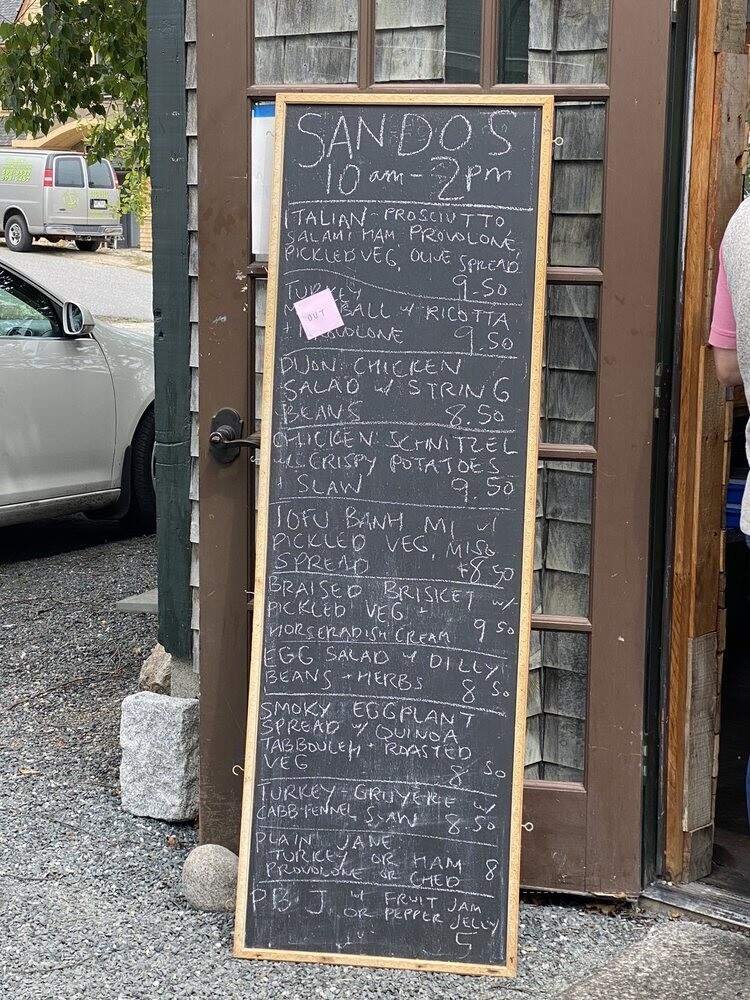 SANDOS
10 am - 2 pm
ITALIAN - PROSCIUTTO
SALAMI HAM PROVOLONE,
PICKLED VEG, OLIVE SPREAD
9.50
TURKEY
OUT
BALL W/ RICOTTA
+ PROVOLONE 9.50
DIJON CHICKEN
SALAD W/ STRING
BEANS 8.50
CHICKEN SCHNITZEL
W/ CRISPY POTATOES
+ SLAW 9.50
TOFU BANH MI W/
PICKLED VEG, MISO
SPREAD +8.50
BRAISED BRISKET W/
PICKLED VEG +
HORSERADISH CREAM 9 50
EGG SALAD W/ DILLY
BEANS + HERBS 8 50
SMOKY EGGPLANT
SPREAD W/ QUINOA
TABBOULEH + ROASTED
VEG 8 50
TURKEY - GRUYERE W/
CABB-FENNEL SLAW 8.50
PLAIN JANE
TURKEY OR HAM 8
PROVOLONE OR CHED
PB J W/ FRUIT JAM
OR PEPPER JELLY
5